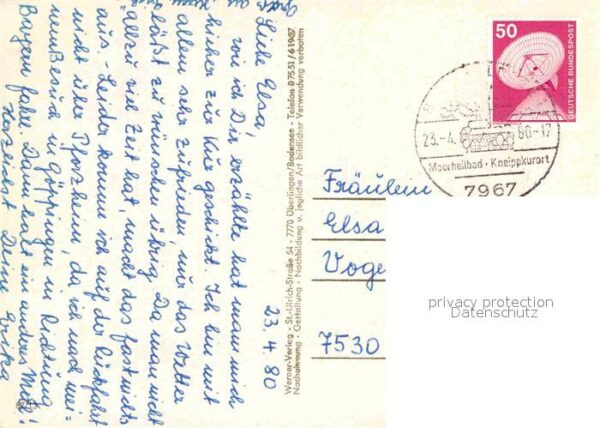 23.4.80
Liebe Elsa!
wie ich Dir erzählte hat man mich
lieber zur Kur geschickt. Ich bin mit
allem sehr zufrieden, nur das Wetter
läßt zu wünschen übrig. Da man nicht
allzu viel Zeit hat, macht das fast nichts
aus. Leider komme ich auf der Rückfahrt
nicht über Pforzheim, da ich nach mei-
nem Besuch in Göppingen in Richtung
Bayern fahre. Dann halt ein anderes Mal!
Herzlichst Deine Erika
Werner-Verlag · St.-Ulrich-Straße 54 · 7770 Überlingen/Bodensee · Telefon 07551/61967
Nachahmung · Gestaltung · Nachbildung u. jegliche Art bildlicher Verwendung verboten
50
DEUTSCHE BUNDESPOST
23.-4. 80-17
Moorheilbad · Kneippkurort
7967
Fräulein
Elsa
Voge
7530
privacy protection
Datenschutz